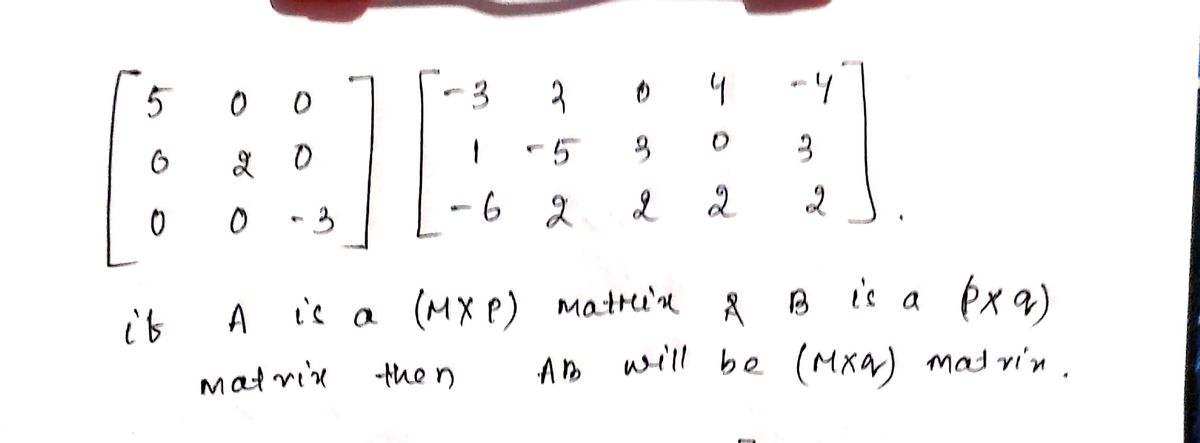 5 0 0 -3 2 0 4 -4
0 2 0 1 -5 3 0 3
0 0 -3 -6 2 2 2 2 .
if A is a (M×P) matrix & B is a (p×q)
matrix then AB will be (M×q) matrix .